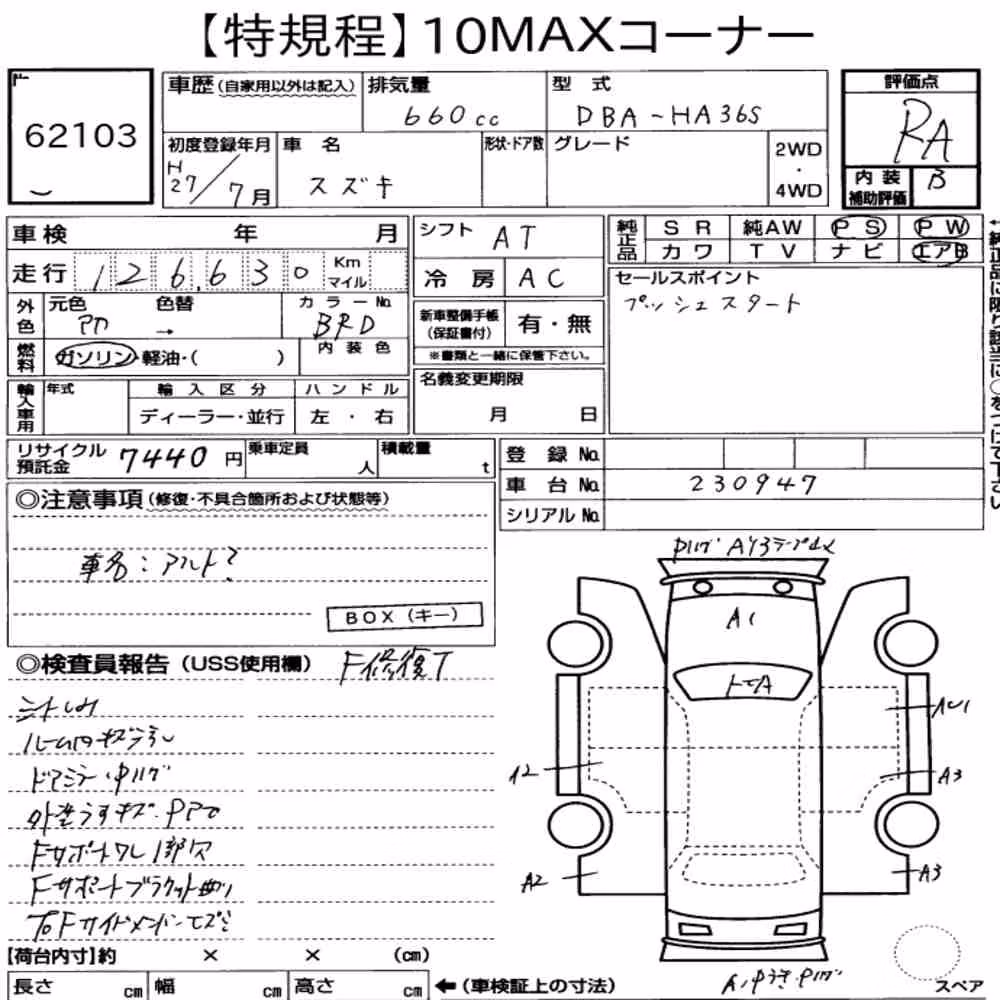 【特規程】10MAXコーナー
62103
車歴(自家用以外は記入)
排気量
660cc
型 式
DBA-HA36S
評価点
RA
初度登録年月
H
27/7月
車 名
スズキ
形状・ドア数
グレード
2WD
・
4WD
内 装
補助評価
B
車検 年 月
シフト AT
純正品
SR 純AW PS PW
カワ TV ナビ エアB
走行 126,630 Km
マイル
冷 房 AC
セールスポイント
プッシュスタート
外色
元色 色替
カラーNo
BRD
新車整備手帳
(保証書付)
有・無
※書類と一緒に保管下さい。
燃料
ガソリン・軽油・( )
内 装 色
名義変更期限
月 日
輸入車用
年式
輸 入 区 分
ハンドル
ディーラー・並行
左 ・ 右
リサイクル
預託金
7440円
乗車定員
人
積載量
t
登 録 No
車 台 No 230947
シリアル No
◎注意事項(修復・不具合箇所および状態等)
車名:アルト?
BOX(キー)
◎検査員報告(USS使用欄) F修復T
シートしみ
ルーム内キズ
ドアミラー
外塗うすキズ
Fサポートワレ1部欠
Fサポートブラケット曲り
A1
A2
A3
A2
A3
【荷台内寸】約 × × (cm)
長さ cm 幅 cm 高さ cm
←(車検証上の寸法)
スペア